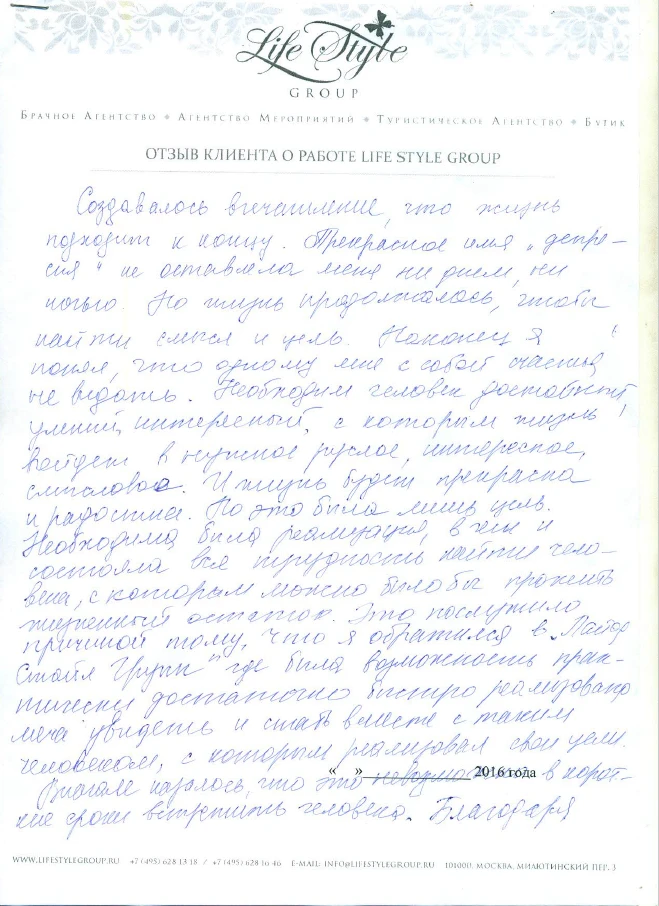 Life Style
GROUP
Брачное Агентство • Агентство Мероприятий • Туристическое Агентство • Бутик
ОТЗЫВ КЛИЕНТА О РАБОТЕ LIFE STYLE GROUP
Создавалось впечатление, что жизнь
подходит к концу. Прекрасное имя „депре-
сия" не оставляла меня ни днем, ни
ночью. Но жизнь продолжалось, чтобы
найти смысл и цель. Наконец я
понял, что одному мне с собой счастья
не видать. Необходим человек достойный,
умений, интересный, с которым жизнь
войдет в нужное руслое, интересное,
смысловое. И жизнь будет прекрасна
и радостна. Но это была лишь цель.
Необходима была реализация, в чем и
состояла вся трудность найти чело-
века, с которым можно было бы прожить
жизненный остаток. Это послужило
причиной тому, что я обратился в „Лайф
Стайл Групп" где была возможность прак-
тически достаточно быстро реализовано
меча увидеть и стать вместе с таким
человеком, с которым реализовал свои цели.
« » 2016 года
Вначале казалось, что это в корот-
кие сроки встретить человека. Благодаря
WWW.LIFESTYLEGROUP.RU +7 (495) 628 13 18 / +7 (495) 628 16 46 E-MAIL: INFO@LIFESTYLEGROUP.RU 101000, МОСКВА, МИЛЮТИНСКИЙ ПЕР. 3